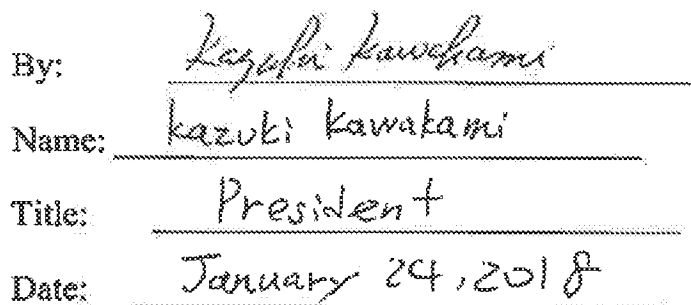 By: Kazuki Kawakami
Name: Kazuki Kawakami
Title: President
Date: January 24, 2018